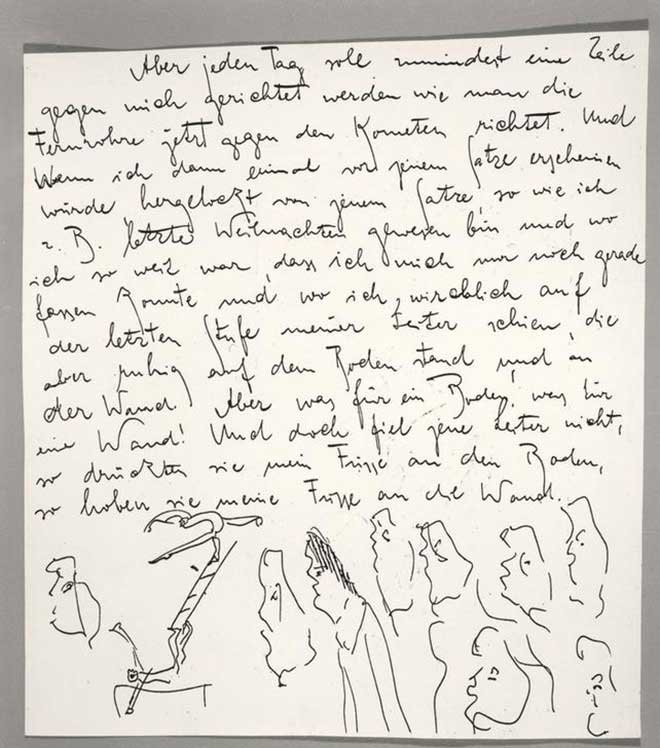 Aber jeden Tag soll mindest eine Zeile
gegen mich gerichtet werden wie man die
Fernrohre jetzt gegen den Kometen richtet. Und
Wenn ich dann einmal vor jenem Satze erscheinen
würde, hergelockt von jenem Satze, so wie ich
z. B. letzte Weihnachten gewesen bin und wo
ich so weit war, dass ich mich nur noch gerade
fassen konnte und wo ich wircklich auf
der letzten Stufe meiner Leiter schien, die
aber ruhig auf dem Boden stand und an
der Wand. Aber was für ein Boden, was für
eine Wand! Und doch fiel jene Leiter nicht,
so drückten sie mein Füsse an den Boden,
so hoben sie meine Füsse an die Wand.